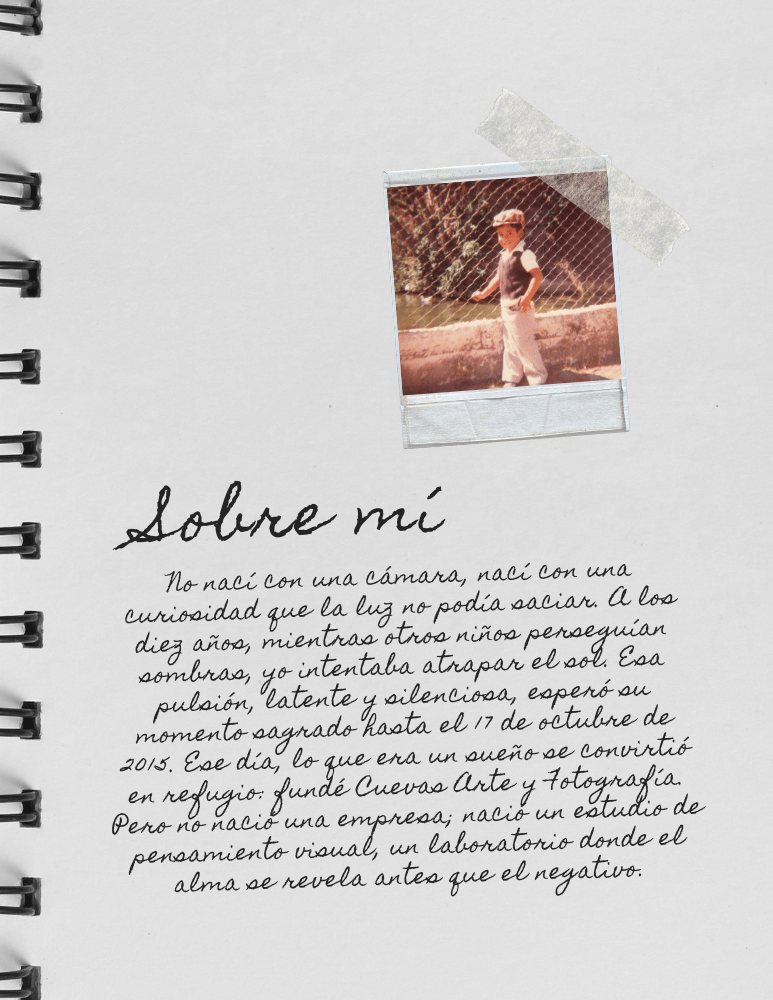 Sobre mí
No nací con una cámara, nací con una
curiosidad que la luz no podía saciar. A los
diez años, mientras otros niños perseguían
sombras, yo intentaba atrapar el sol. Esa
pulsión, latente y silenciosa, esperó su
momento sagrado hasta el 17 de octubre de
2015. Ese día, lo que era un sueño se convirtió
en refugio: fundé Cuevas Arte y Fotografía.
Pero no nació una empresa; nació un estudio de
pensamiento visual, un laboratorio donde el
alma se revela antes que el negativo.